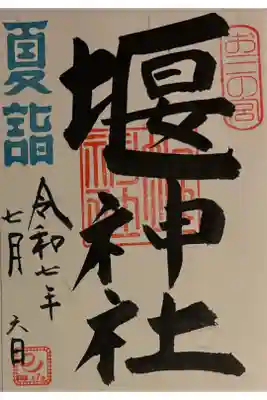 お三の宮
堰神社
夏詣
令和七年
七月 六日